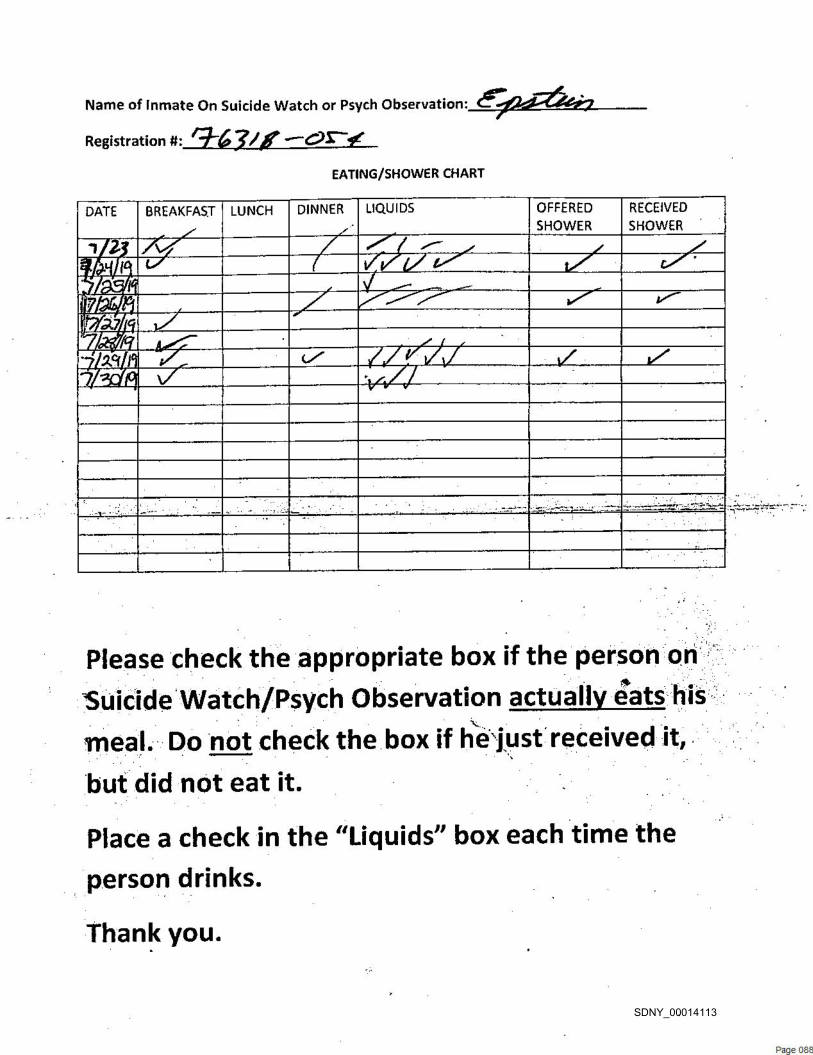 Name of Inmate On Suicide Watch or Psych Observation: Epstein
Registration #: 76318-054
EATING/SHOWER CHART
DATE BREAKFAST LUNCH DINNER LIQUIDS OFFERED SHOWER RECEIVED SHOWER
7/23 ✓ / / / / ✓ ✓
7/24/19 ✓ / ✓ ✓ ✓ ✓ ✓ ✓
7/25/19 ✓
7/26/19 / / / / ✓ ✓
7/27/19 ✓
7/28/19 ✓
7/29/19 ✓ ✓ ✓ ✓ ✓ ✓ ✓ ✓ ✓
7/30/19 ✓ ✓ ✓ ✓
Please check the appropriate box if the person on
Suicide Watch/Psych Observation actually eats his
meal. Do not check the box if he just received it,
but did not eat it.
Place a check in the “Liquids” box each time the
person drinks.
Thank you.
SDNY_00014113
Page 088